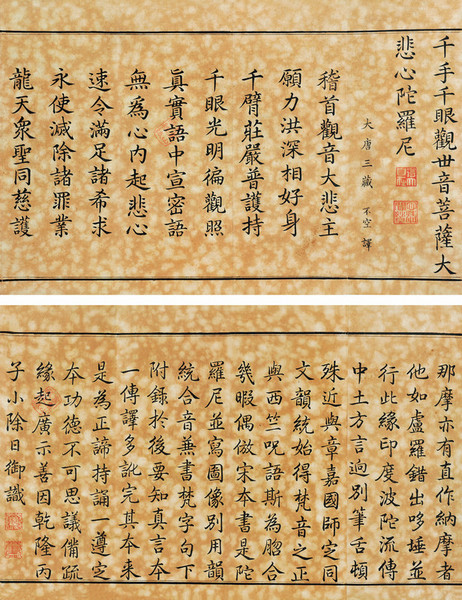 千手千眼觀世音菩薩大
悲心陀羅尼
大唐三藏 不空 譯
稽首觀音大悲主
願力洪深相好身
千臂莊嚴普護持
千眼光明徧觀照
眞實語中宣密語
無爲心內起悲心
速令滿足諸希求
永使滅除諸罪業
龍天衆聖同慈護
那摩亦有直作納摩者
他如盧羅錯出哆埵並
行此緣印度波陀流傳
中土方言逈別筆舌頓
殊近與章嘉國師定同
文韻統始得梵音之正
與西竺呪語斯為脗合
幾暇偶倣宋本書是陀
羅尼並寫圖像別用韻
統合音兼書梵字句下
附錄於後要知真言本
一傳譯多訛完其本來
是為正諦持誦一遵定
本功德不可思議備疏
緣起廣示善因乾隆丙
子小除日御識